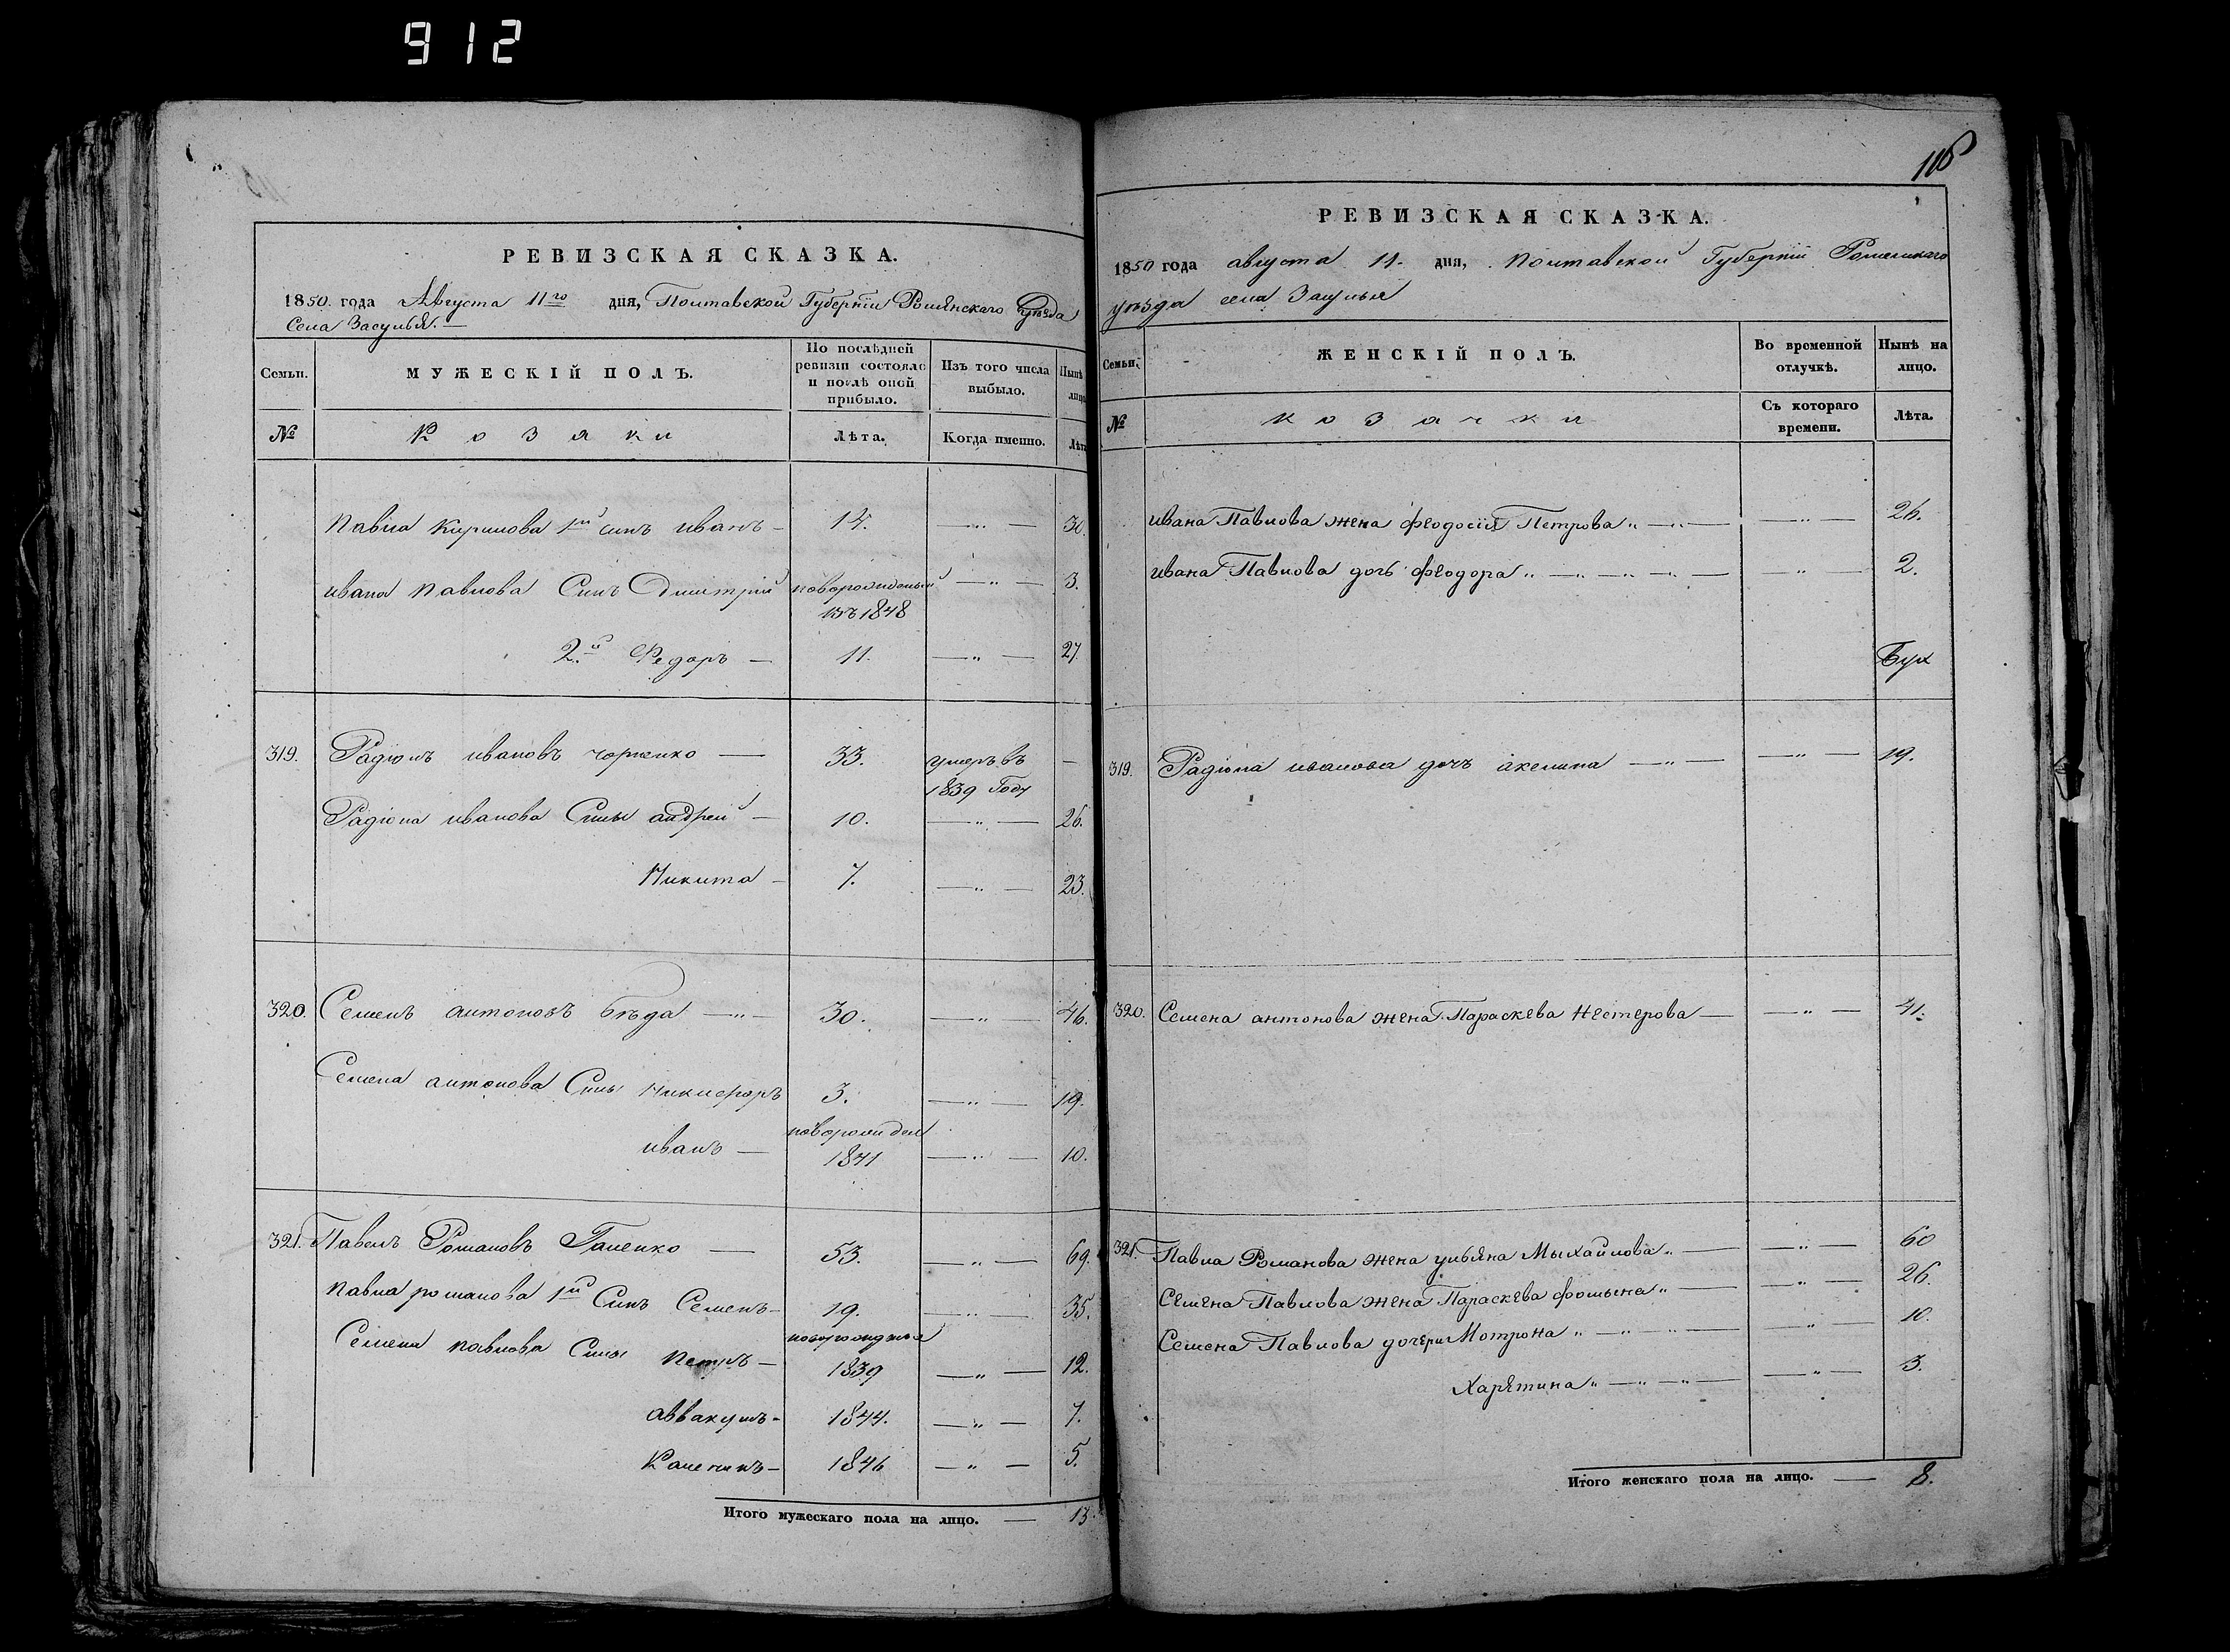 912
116
РЕВИЗСКАЯ СКАЗКА.
1850. года Августа 11го дня, Полтавской Губерніи Роменскаго уѣзда
Села Засулья. —
Семьи. МУЖЕСКІЙ ПОЛЪ. По послѣдней ревизіи состояло и послѣ оной прибыло. Изъ того числа выбыло. Нынѣ лицо
№ Козаки Лѣта. Когда именно. Лѣта
Павла Кирилова 1й синъ иванъ — 14. — „ — 30.
ивана павлова Синъ Димитрій новорожденый — „ — 3.
въ 1848
2й Федоръ — 11. — „ — 27
319. Радіонъ ивановъ чорненко — 33. умеръ въ —
1839 Году
Радіона иванова Сины андрей — 10. — „ — 26.
Никита — 7. — „ — 23.
320. Семенъ антоновъ бѣда — „ — 30. — „ — 46.
Семена антонова Сины Никифоръ 3. — „ — 19.
новорожден
иванъ — 1841 — „ — 10.
321. Павелъ Романовъ Галенко — 53. — „ — 69.
павла романова 1й Синъ Семенъ — 19. — „ — 35.
Семена павлова Сины петръ — 1839 — „ — 12.
аввакумъ — 1844. — „ — 7.
Каленикъ — 1846 — „ — 5.
Итого мужескаго пола на лицо. — 13.
РЕВИЗСКАЯ СКАЗКА.
1850 года августа 11. дня, полтавской Губерніи Роменскаго
уѣзда села Засулья
Семьи. ЖЕНСКІЙ ПОЛЪ. Во временной отлучкѣ. Нынѣ на лицо.
№ козачки Съ котораго времени. Лѣта.
ивана Павлова жена феодосія Петрова „ — „ — — „ — 26.
ивана Павлова дочь феодора „ — „ — „ — „ — — „ — 2.
319. Радіона иванова дочъ акелина — „ — — „ — 19.
320. Семена антонова жена Параскева Нестерова — — „ — 41.
321. Павла Романова жена ульяна Мыхайлова „ — — „ — 60
Семена Павлова жена Параскева фомына „ — — „ — 26.
Семена Павлова дочери Мотрона „ — „ — „ — — „ — 10.
Харятина „ — „ — „ — — „ — 3.
Итого женскаго пола на лицо. — 8.